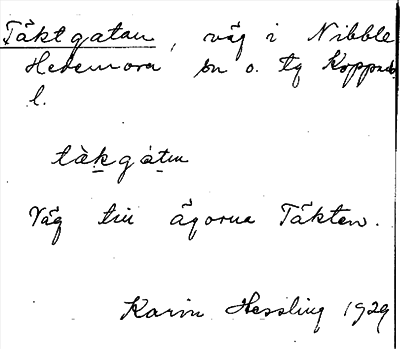 Täktgatan, väg i Nibble
Hedemora sn o. tg Kopparb.
l.
tàk̠gát̠ɯ
Väg till ägorna Täkten.
Karin Hessling 1929